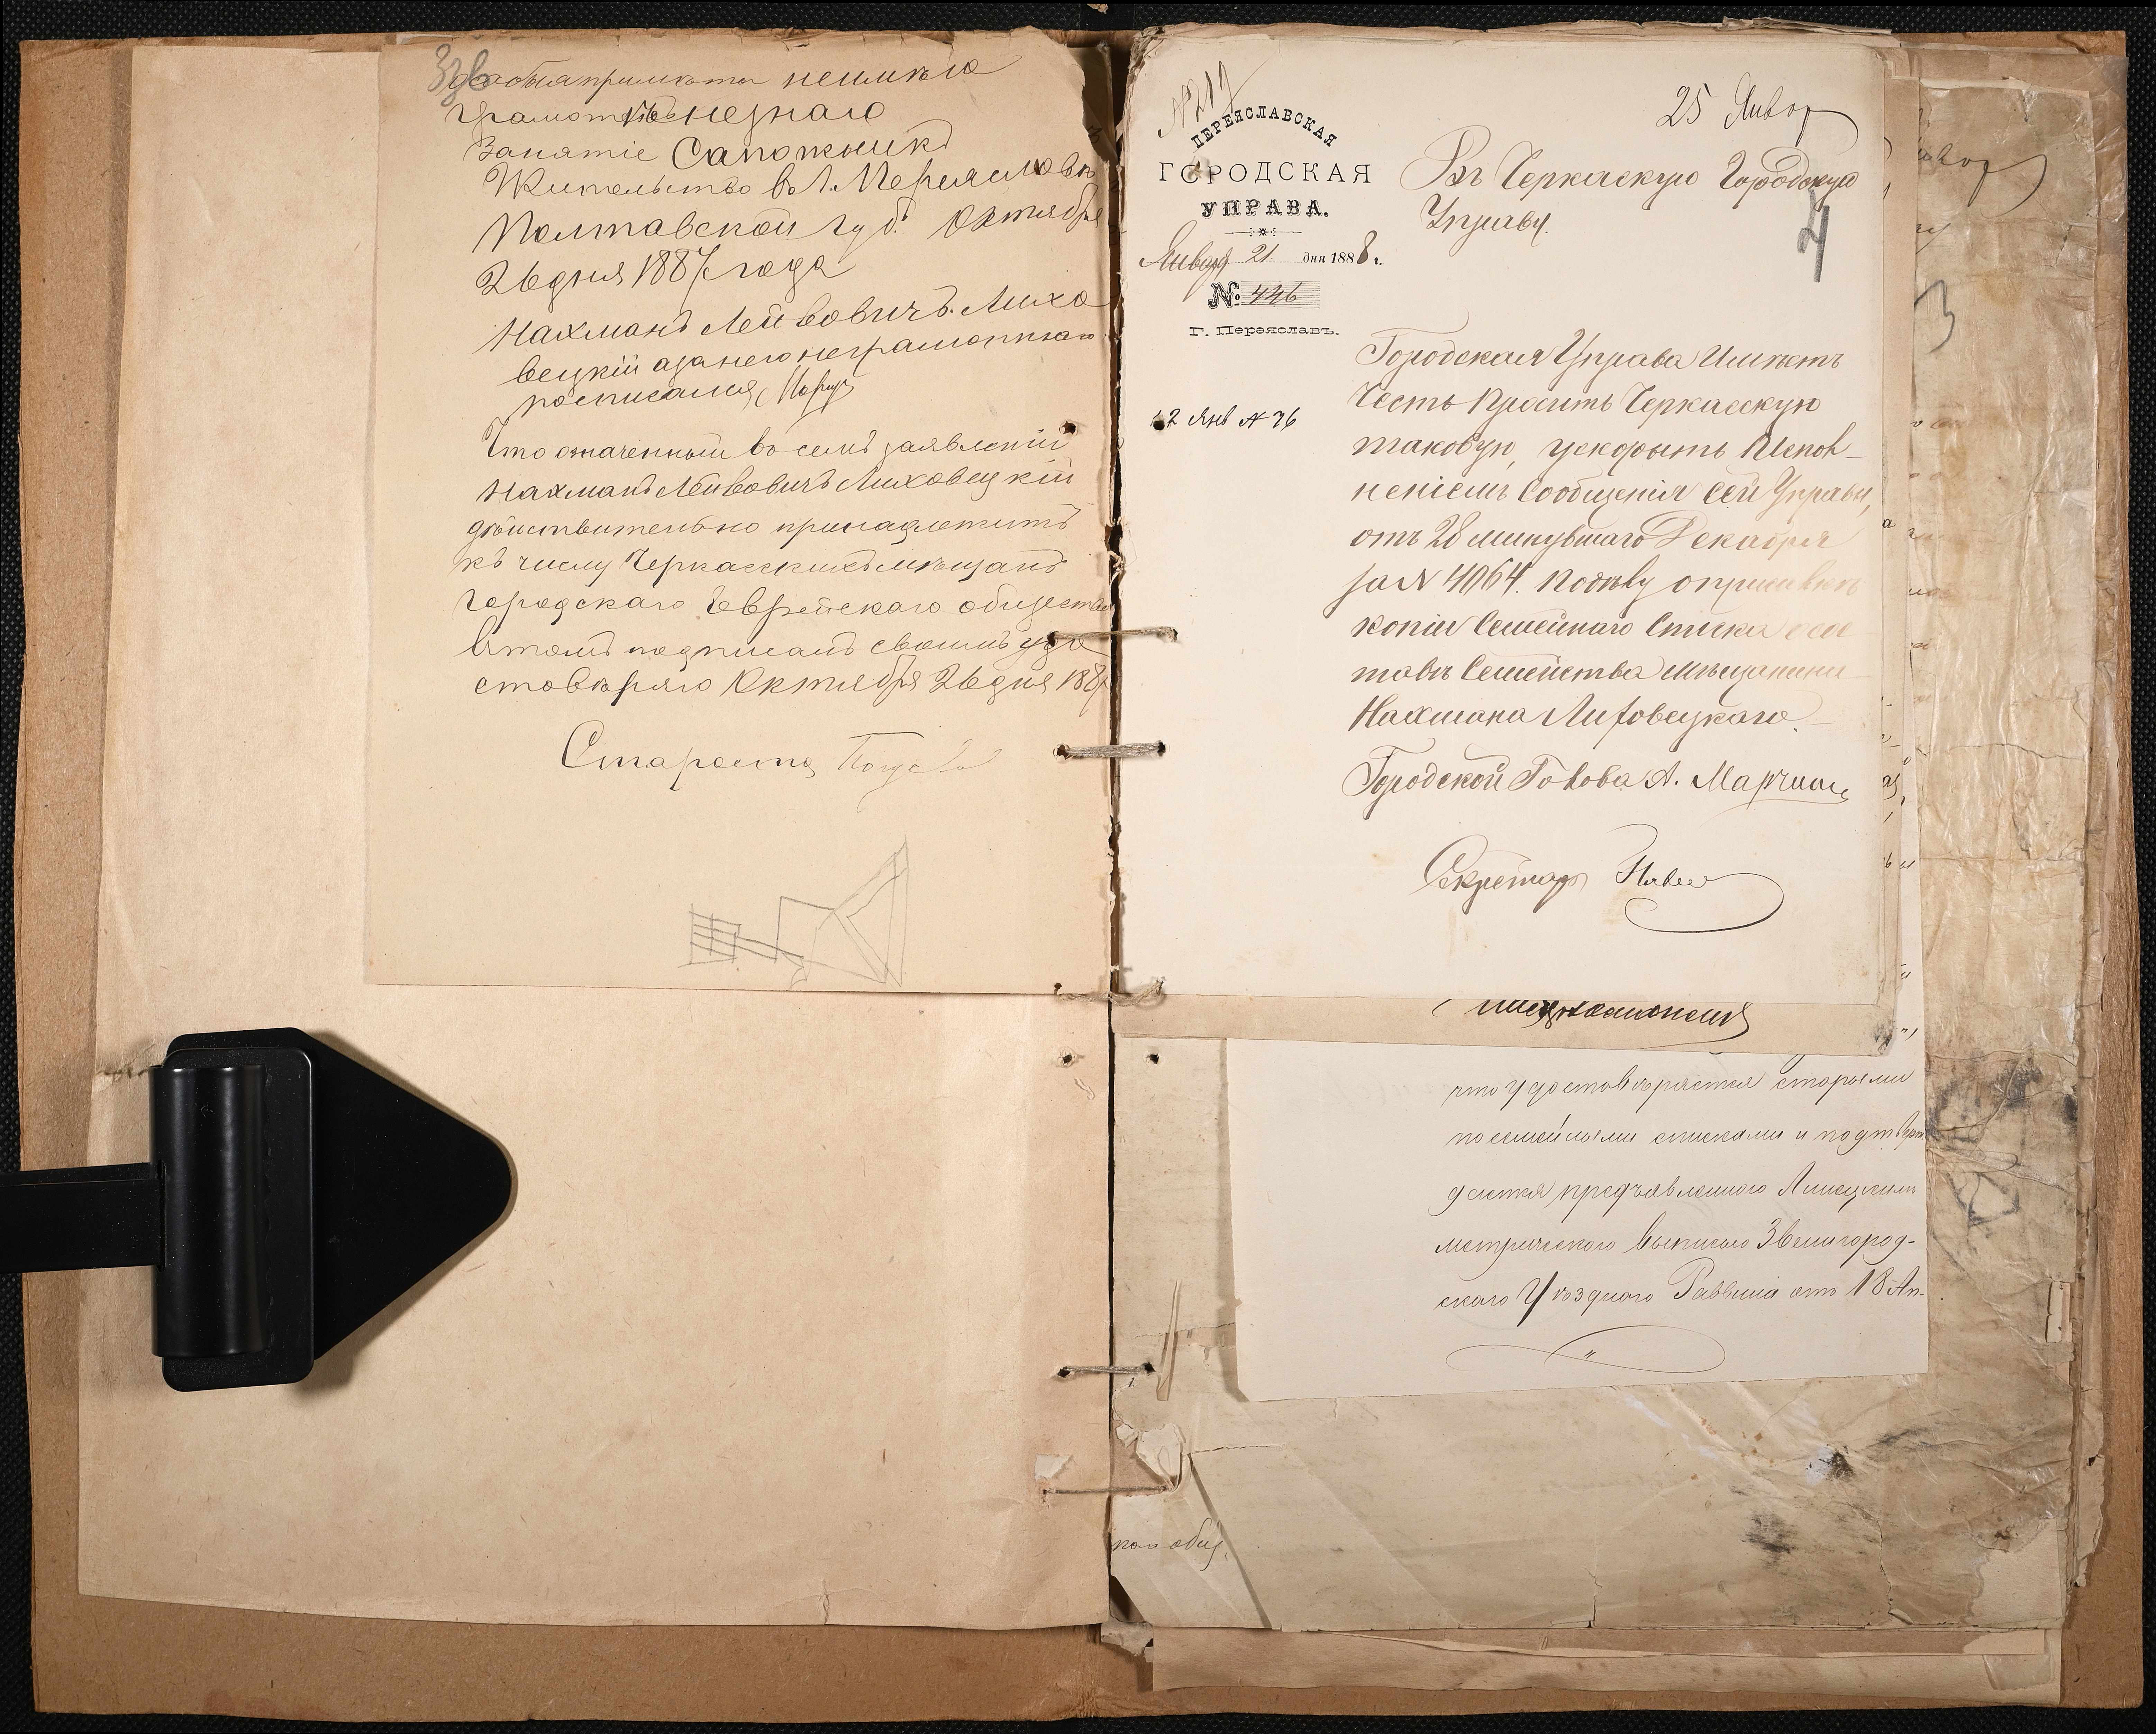 Особыя примѣты неимѣю
грамотѣ незнаю
Занятіе Сапожникъ
Жительство в г. Переяславѣ
Полтавской губ. Октября
26 дня 1887 года
Нахманъ Лейбовичъ Лихо
вецкій азанего неграмотнаго
росписался
Что означенный во семъ заявленіи
Нахманъ Лейбовичъ Лиховецкій
дѣйствительно принадлежитъ
къ числу Черкасскихъ мѣщанъ
городскаго Еврейскаго общества
втомъ подписомъ своимъ удо
стовѣряю Октября 26 дня 1887
Староста
№ 217
ПЕРЕЯСЛАВСКАЯ
ГОРОДСКАЯ
УПРАВА.
Января 21 дня 1888 г.
№ 446
Г. Переяславъ.
25 Январ
Въ Черкаскую Городскую
Управу.
4
Городская Управа Имѣетъ
Честь Просить Черкасскую
таковую, ускорить Испол-
неніемъ Сообщенія Сей Управы,
отъ 28 минувшаго Декабря
за № 4064. по дѣлу о припискѣ
копіи Семейнаго Списка о сос
тавѣ Семейства мѣщанина
Нахмана Лиховецкаго.
22 Янв № 76
Городской Голова А.
Секретарь
что удостовѣряется старыми
посемейными списками и подтверж
дается предъявленною Липецкимъ
метрическою выписью Звенигород-
скаго Уѣзднаго Раввина отъ 18 Ап-